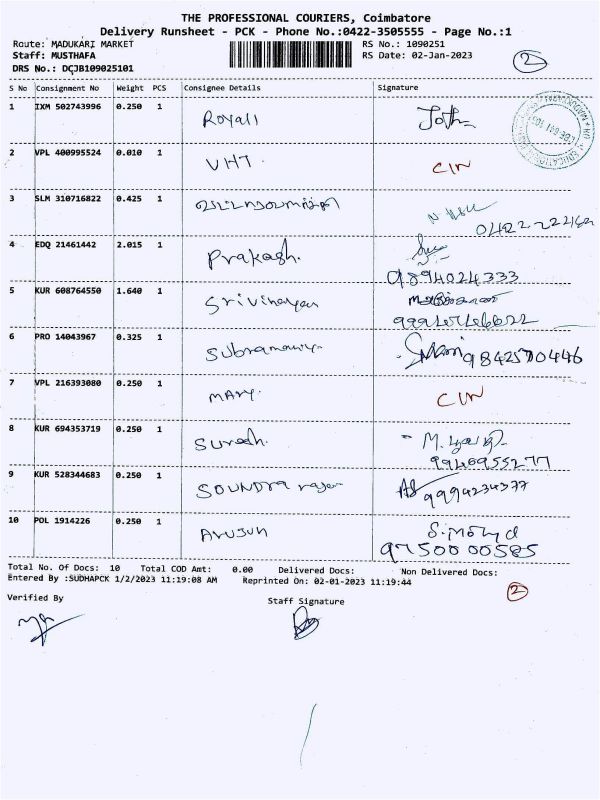 THE PROFESSIONAL COURIERS, Coimbatore
Delivery Runsheet - PCK - Phone No.:0422-3505555 - Page No.:1
Route: MADUKARI MARKET RS No.: 1090251
Staff: MUSTHAFA RS Date: 02-Jan-2023 2
DRS No.: DCJB109025101
S No Consignment No Weight PCS Consignee Details Signature
1 IXM 502743996 0.250 1 Royali
2 VPL 400995524 0.010 1 VHT.
3 SLM 310716822 0.425 1
4 EDQ 21461442 2.015 1 Prakash.
9894024333
5 KUR 608764550 1.640 1 Srivinayan
6 PRO 14043967 0.325 1 9842570446
7 VPL 216393080 0.250 1 MARY.
8 KUR 694353719 0.250 1 Suresh.
9 KUR 528344683 0.250 1 SOUNDRA rajan 9994234377
10 POL 1914226 0.250 1 S. Mohd
9750000585
Total No. Of Docs: 10 Total COD Amt: 0.00 Delivered Docs: Non Delivered Docs:
Entered By :SUDHAPCK 1/2/2023 11:19:08 AM Reprinted On: 02-01-2023 11:19:44
2
Verified By Staff Signature